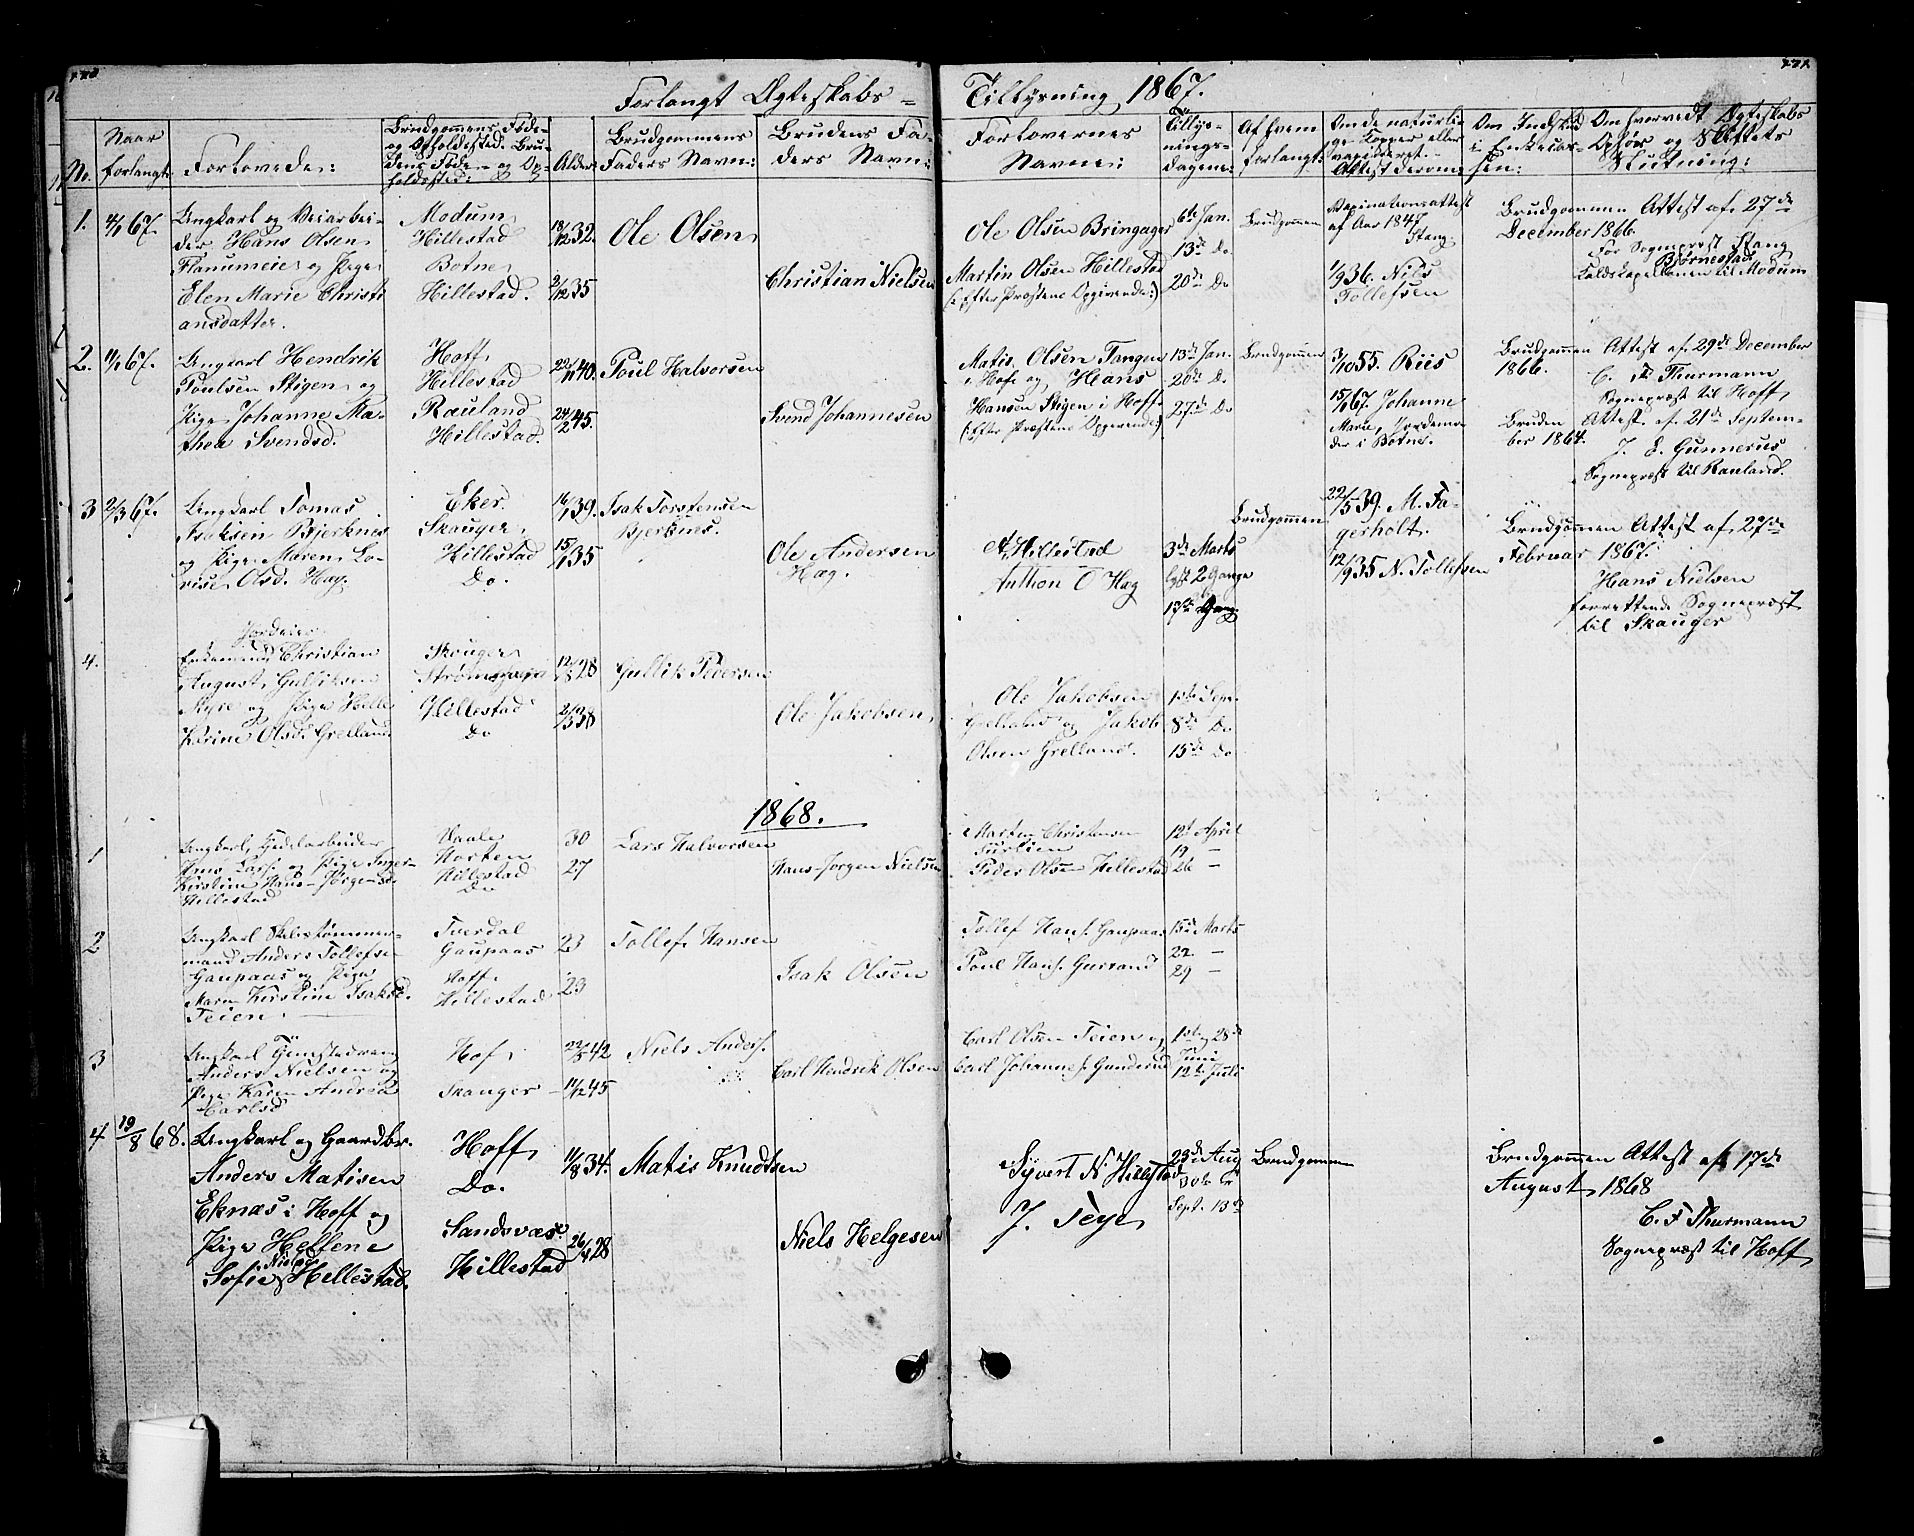 Forlangt Ægteskabs =
Tillysning 1867.
No.
Naar
forlangt:
Forlovede:
Brudgommens Føde-
og Opholdssted. Bru-
dens Føde- og Op-
holdssted:
Alder:
Brudgommens
Faders Navn:
Brudens Fa-
ders Navn:
Forlovernes
Navne:
Tillys-
nings-
dagene:
Af hvem
forlangt:
Om de naturli-
ge Kopper eller
vaccineret.
Attest derom:
Om Indskud
i Enkekas-
sen:
Om forrevedt Ægteskabs
Ophør og Skiftets
Slutning:
1.
4/1 67.
Ungkarl og Veiarbei-
der Hans Olsen
Flanumeie og Pige
Elen Marie Christi
ansdatter.
Modum
Hillestad
Botne
Hillestad.
18/12 32.
2/12 35
Ole Olsen
Christian Nielsen
Ole Olsen Bringager
Martin Olsen Hillestad
(: Efter Præstens Opgivende:)
6te Jan.
13de Do
20de Do
Brudgommen
Vaccinationsattest
af Aar 1847
Stang.
1/9 36. Nils
Tollefsen
Brudgommen Attest af 27de
December 1866.
For Sognepræst Stang
Bjørnestad
Kaldskapellanen til Modum
2.
11/1 67.
Ungkarl Hendrik
Poulsen Stigen og
Pige Johanne Ma-
thea Svendsd.
Hoff
Hillestad
Rauland
Hillestad.
22/11 40.
24/2 45
Poul Halvorsen
Svend Johannesen
Matis Olsen Tangen
i Hof og Hans
Hansen Stigen i Hoff
(: Efter Præstens Opgivende:)
13de Jan.
20de D.
27de Do
Brudgommen
3/10 55. Riis
15/1 67. Johanne
Marie, Jordemo-
der i Botne.
Brudgommen Attest af 29de December
1866.
C. F. Thurmann
Sognepræst til Hoff
Bruden Attest af 21de Septem-
ber 1864.
J. E. Gunnerus
Sognepræst til Rauland.
3
2/3 67.
Ungkarl Tomas
Isaksen Bjerknes
og Pige Maren Lo-
vise Olsd. Hag.
Eker.
Skouger
Hillestad
Do.
16/1 39.
15/1 35
Isak Torstensen
Bjerknes.
Ole Andersen
Hæg.
N. Hillestad
Anthon O Hæg
3de Marts
Lyst 2 Gange
17de Gang.
Brudgommen
22/5 39. M. Fa-
gerholt.
12/9 35 N. Tollefsen
Brudgommen Attest af 27de
Februar 1867.
Hans Nielsen
forrettende Sognepræst
til Skauger
4.
Enkemand Christian
August Gulliksen
Myre og Pige Helle
Karine Olsd. Grelland
Skouger
Hillestad
Do
12/3 28
Gullik Pedersen
Ole Jakobsen
Ole Jakobsen
Grelland og Jakob
Olsen Grelland.
1ste Sept.
8de Do
15de Do
1868.
1
Ungkarl, Gudsarbeider
Hans Lars. og Pige Inger
Kirstine Hans-Jørgensd.
Hillestad
Vaale
Horten
Hillestad
Do
30
27
Lars Halvorsen
Hans-Jørgen Nielsen
Marten Christensen
Peder Olsen Hillestad
12t April
19 -
26 -
2
Ungkarl Skibstømmer-
mand Anders Tollefsen
Gaupaas og Pige
Maren Kirstine Isaksd.
Teien.
Tverdal
Gaupaas
Hoff
Hillestad
23
23
Tollef Hansen
Isak Olsen
Tollef Hans. Gaupaas
Poul Hans. Gurrand
15de Marts
22 -
29 -
3
Ungkarl
Anders Nielsen og
Pige Karen Andrea
Carlsd
Hof
Skauger
22/5 42
11/12 45
Niels Anders.
Carl Hendrik Olsen
Carl Olsen Teien og
Carl Johannes. Gunderud
1ste, 28de
Juni
12te Juli
4
19/8 68.
Ungkarl og Gaardbr.
Anders Matisen
Eknæs i Hoff og
Pige Hellene
Sofie Nielsd Hellestad.
Hoff
Do.
Sandsvær
Hillestad
11/8 34.
26/4 28
Matis Knudtsen
Niels Helgesen
Syvert N Hillestad
J. Teye
23de Aug
30te
Sept. 13de
Brudgommen
Brudgommen Attest af 17de
August 1868
C. F Thurmann
Sognepræst til Hoff